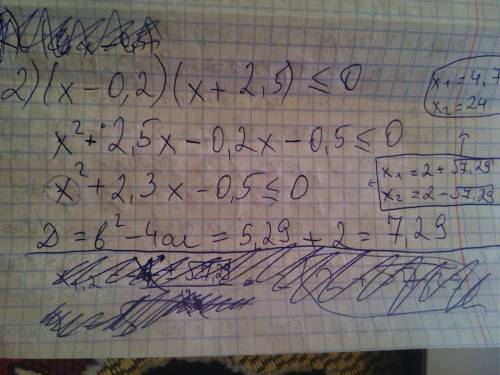 2) (x-0,2)(x+2,5) ≤ 0
x² + 2,5x - 0,2x - 0,5 ≤ 0
x² + 2,3x - 0,5 ≤ 0
D = b² - 4ac = 5,29 + 2 = 7,29
x₁ = 4,7
x₂ = 24
x₁ = 2 + √7,29
x₂ = 2 - √7,29